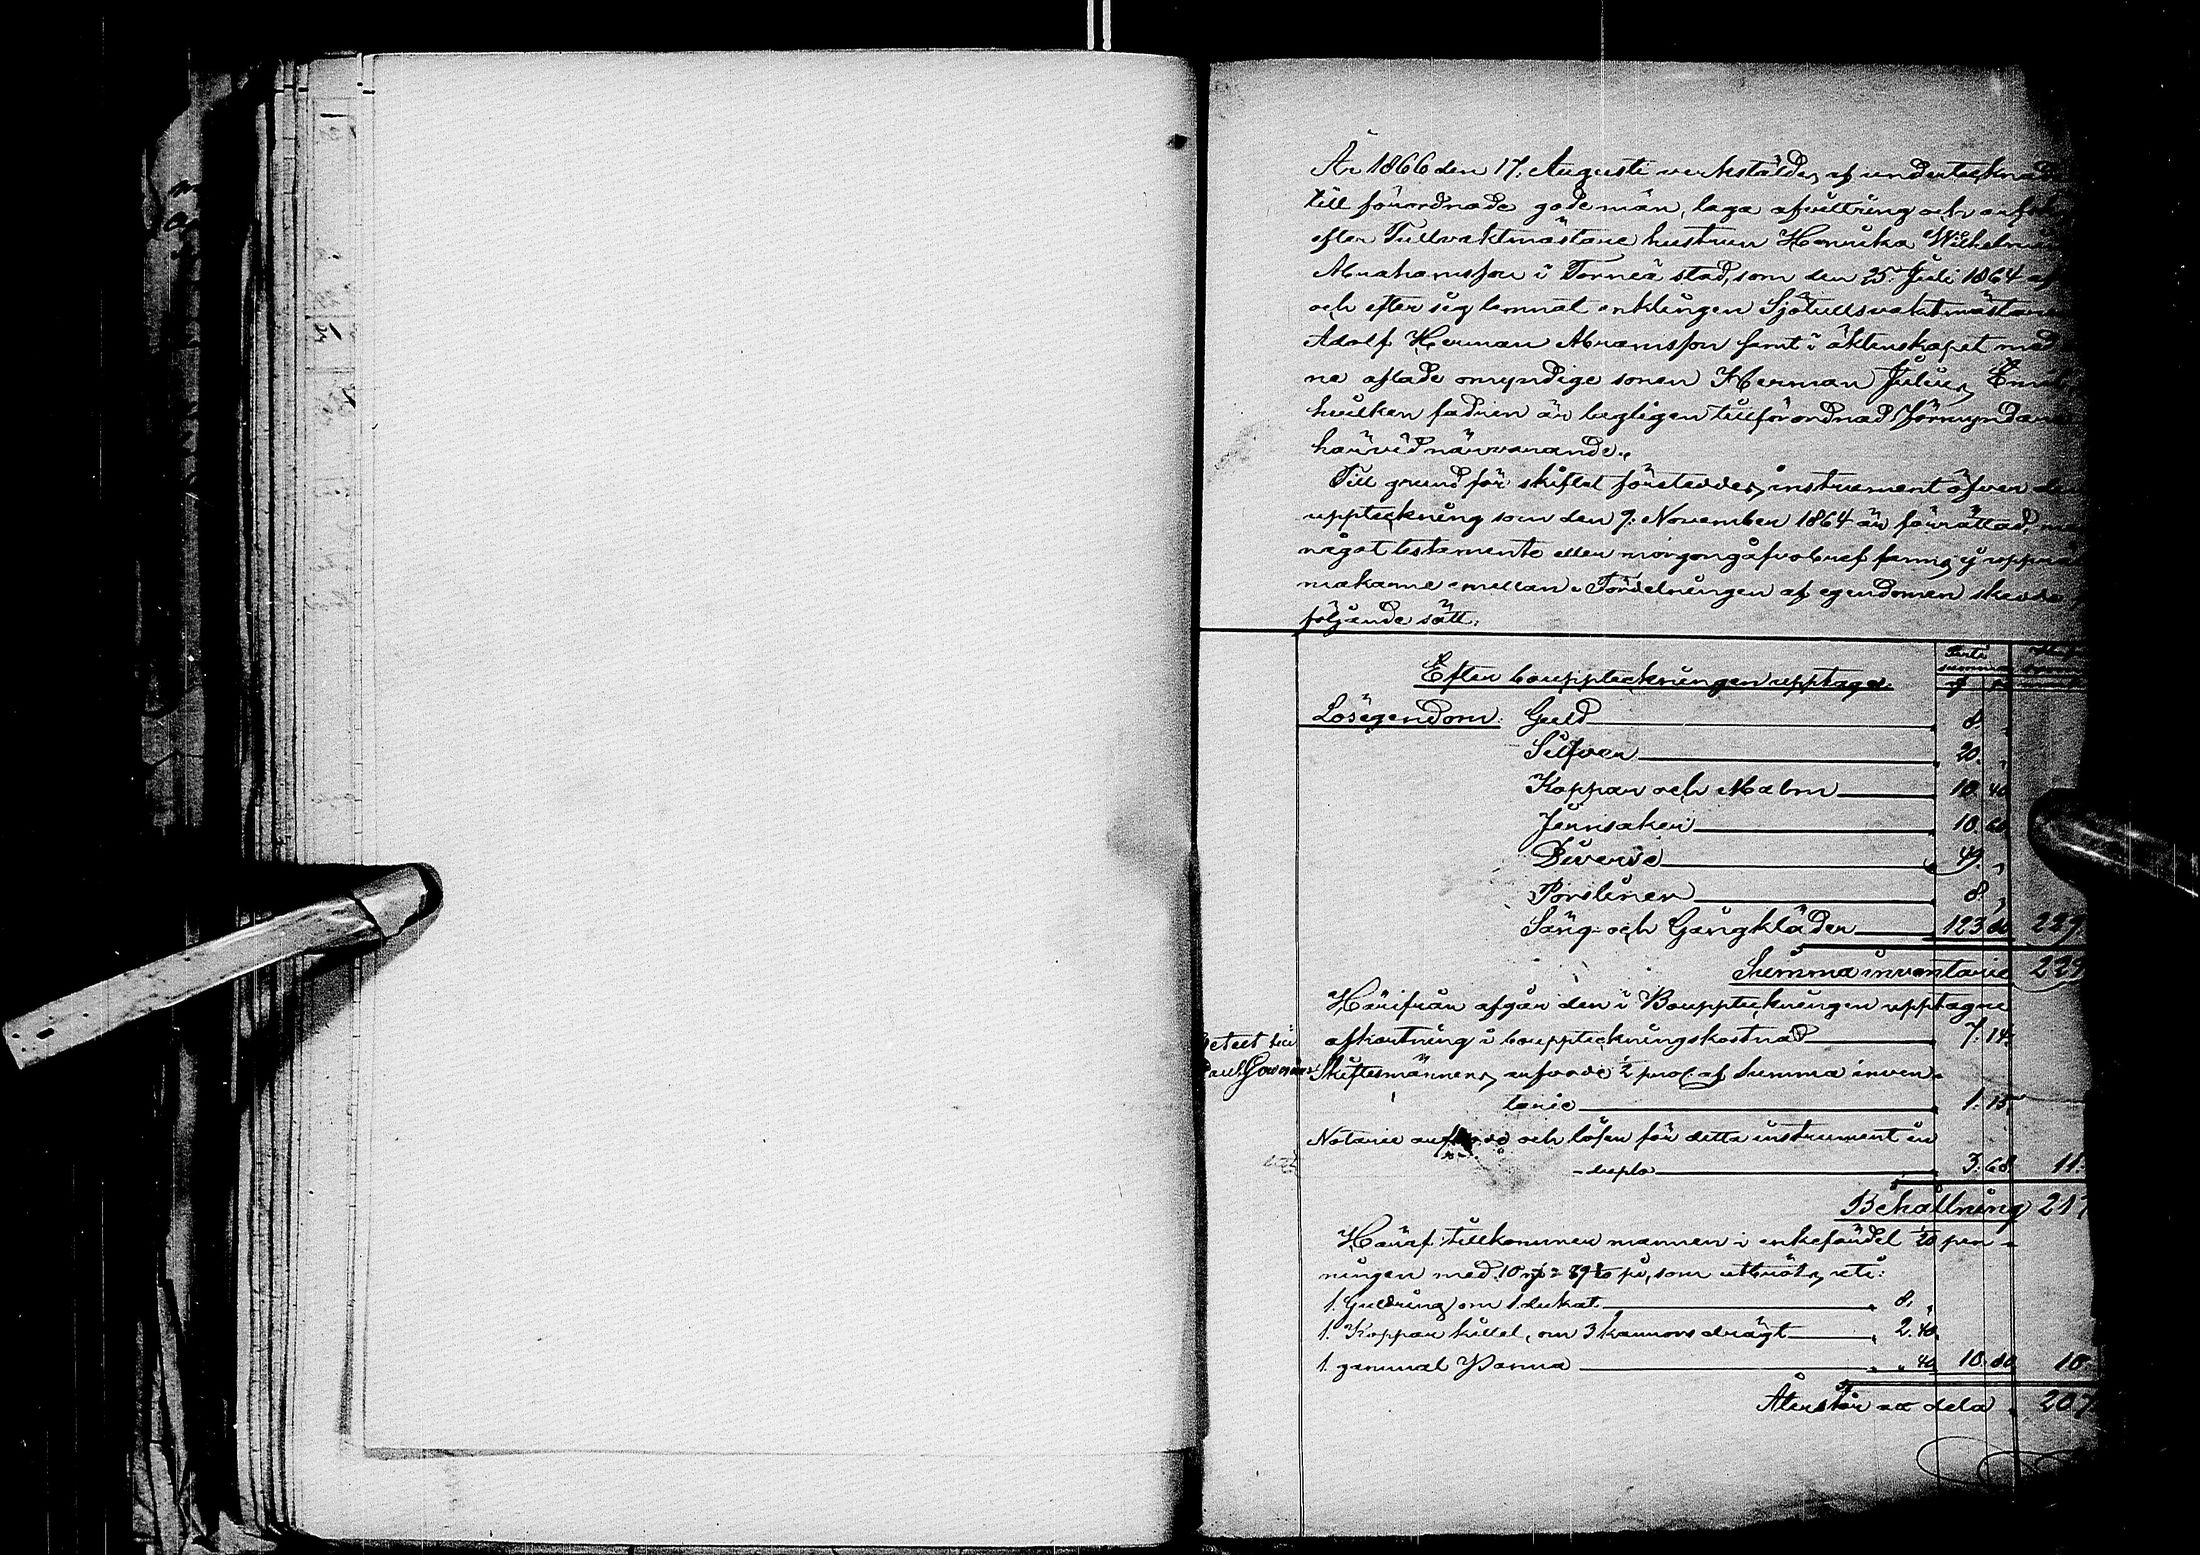 År 1866 den 17. Augusti verkstäldes af undertecknade
till förordnade gode män, laga afvittring och arfsk
efter Tullvaktmästare hustrun Henrika Wilhelmina
Abrahamsson i Torneå stad, som den 25. Juli 1864 af
och efter sig lemnat enklingen Sjötullsvaktmästaren
Adolf Herman Abramsson samt i äktenskapet med
ne aflade omyndige sonen Herman Julius Emil
hvilken fadren är lagligen tillförordnad Förmyndare
härvid närvarande.
Till grund för skiftet företeddes instrument öfver den
uppteckning som den 9. November 1864 är förrättad, men
något testamente eller morgongåfvobref fanns ej upprät
makarne emellan. Fördelningen af egendomen skedde på
följande sätt.
Efter bouppteckningen upptages.
Lösegendom: Guld 8.
Silfver 20.
Koppar och Malm 10. 40
Jernsaker 10. 60
Diverse 49.
Porsliner 8.
Säng- och Gångkläder 123. 80 229.
Summa inventarie 229
Härifrån afgår den i Bouppteckningen upptagne
afkortning i bouppteckningskostnad 7. 14.
Skiftesmännens arfvode ½ proc. af Summa inven-
tarie 1. 15.
Notarie arfvode och lösen för detta instrument in
duplo 3. 68. 11.
Behållning 217
Häraf tillkommer mannen i enkefördel 1/20 pen-
ningen med 10 som utbrötes uti:
1. Guldring om 1. dukat 8.
1. Koppar kittel, om 3 kannors drägt 2. 40.
1. gammal Panna 40 10. 80 10.
Återstår att dela 207